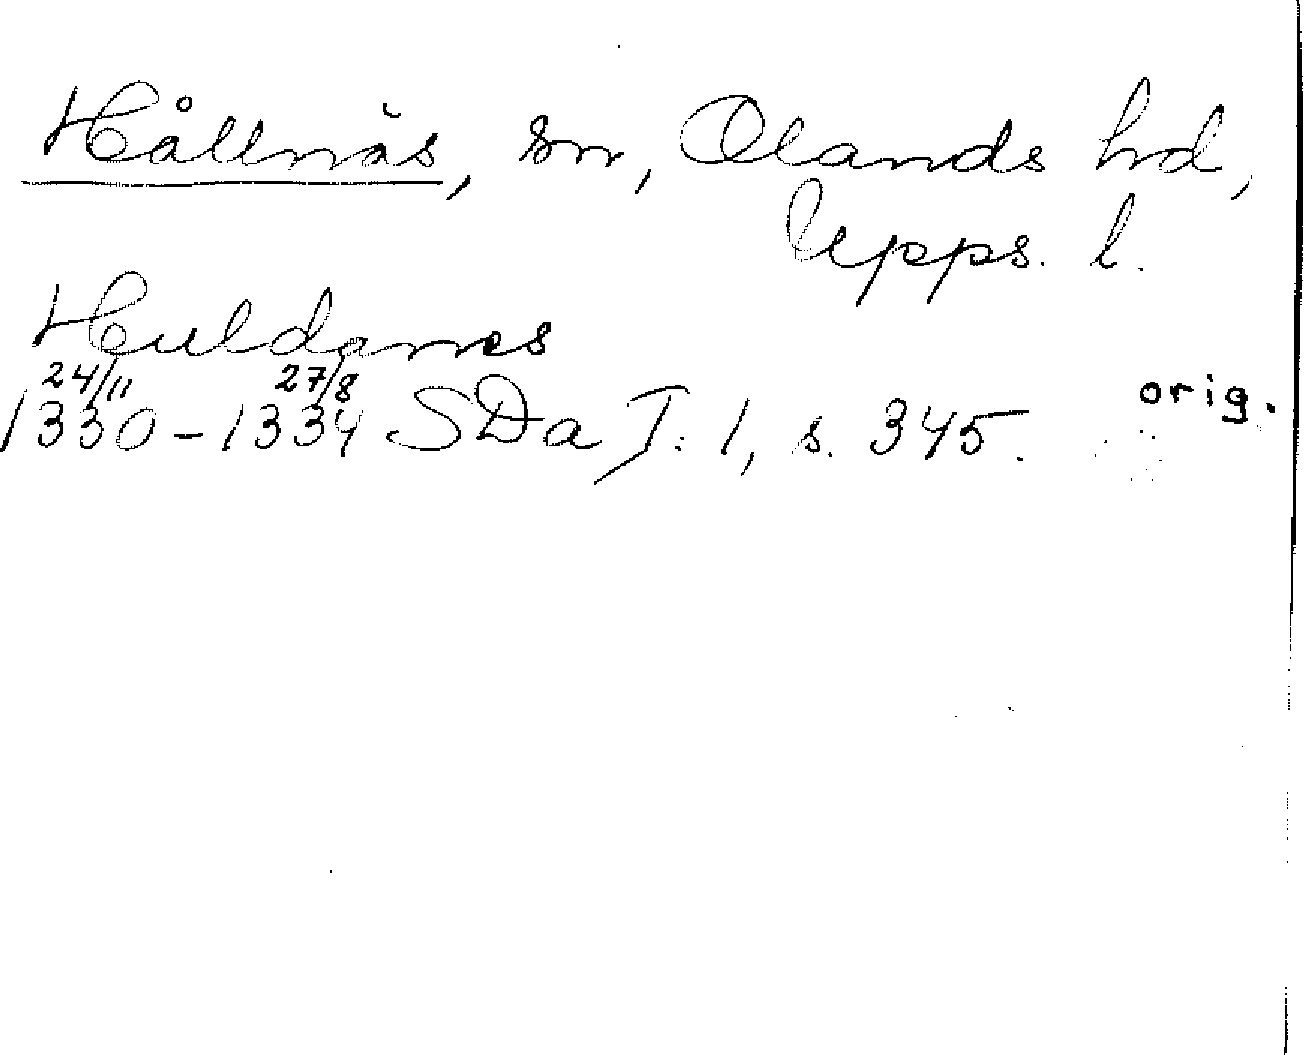 Hållnäs, sn, Olands hd,
Upps. l.
Huldanæs
24/11 27/8
1330-1334 SDa T. 1, s. 345. orig.